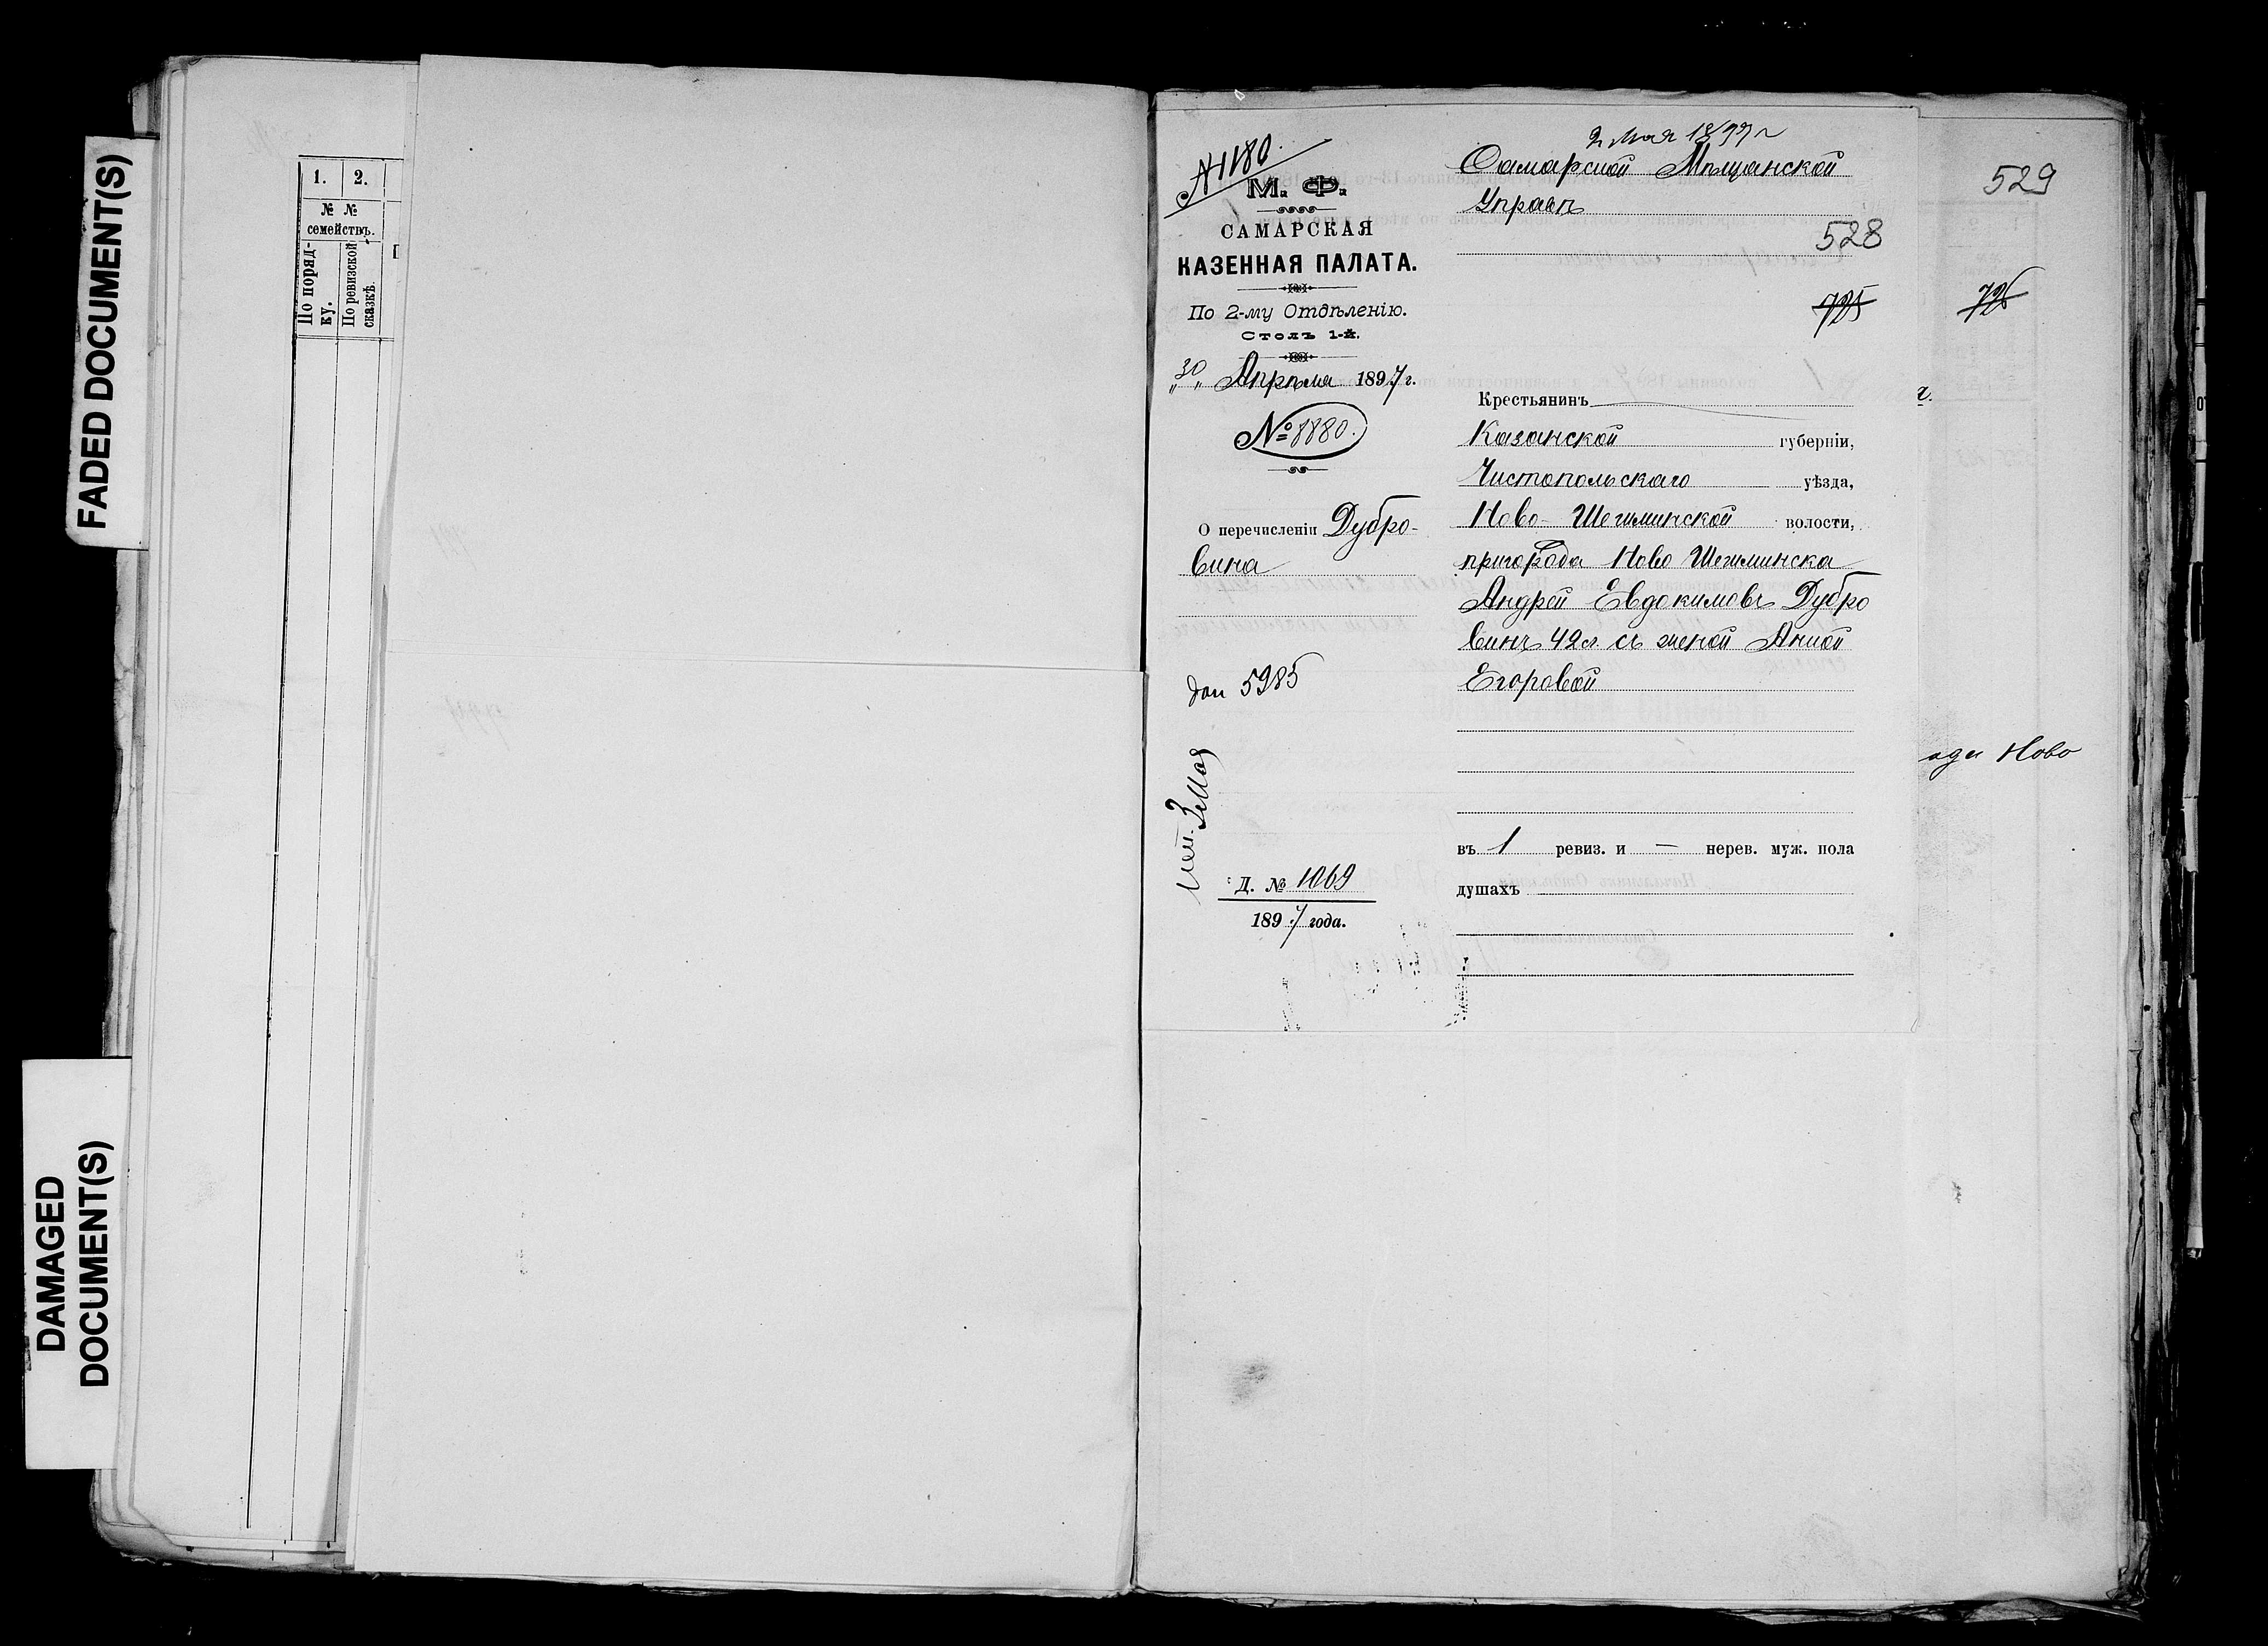 FADED DOCUMENT(S)
DAMAGED
DOCUMENT(S)
1. 2.
№ №
семействъ.
По поряд-
ку.
По ревизской
сказкѣ.
№1180.
М. Ф.
САМАРСКАЯ
КАЗЕННАЯ ПАЛАТА.
По 2-му Отдѣленію.
Столъ 1-й.
„30„ Апрѣля 1897 г.
№ 1180.
О перечисленіи Дубро-
вина
5985
3 Мая
Д. № 1069
1897 года.
2 Мая 1897 г
Самарской Мѣщанской
Управѣ
528
725
Крестьянинъ
Казанской губерніи,
Чистопольскаго уѣзда,
Ново-Шешминской волости,
пригорода Ново Шешминска
Андрей Евдокимовъ Дубро
винъ 42 л. съ женой Анной
Егоровой
въ 1 ревиз. и — нерев. муж. пола
душахъ
529
726
г.
ода Ново